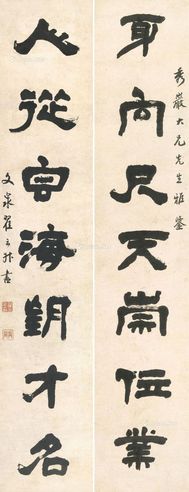 秀巖大兄先生雅鑒
身向尺天崇位業
人從宦海才名
文泉翟云升書